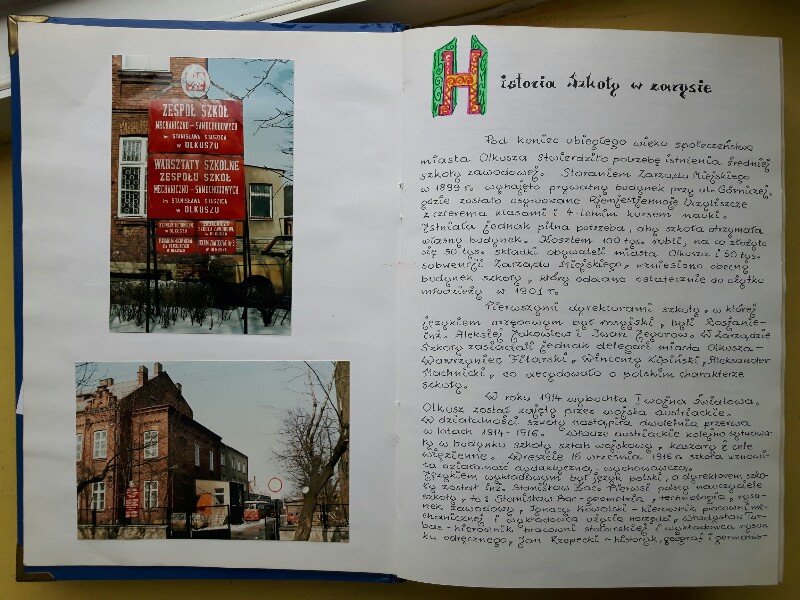 ZESPÓŁ SZKÓŁ
MECHANICZNO-SAMOCHODOWYCH
im. STANISŁAWA STASZICA
w OLKUSZU
WARSZTATY SZKOLNE
ZESPOŁU SZKÓŁ
MECHANICZNO-SAMOCHODOWYCH
im. STANISŁAWA STASZICA
w OLKUSZU
Historia Szkoły w zarysie
Pod koniec ubiegłego wieku społeczeństwo
miasta Olkusza stwierdziło potrzebę istnienia średniej
szkoły zawodowej. Staraniem Zarządu Miejskiego
w 1899 r. wynajęto prywatny budynek przy ul. Górniczej,
gdzie zostało usytuowane Rjemjesljennoje Ucziliszcze
z czterema klasami i 4-letnim kursem nauki.
Istniała jednak pilna potrzeba, aby szkoła otrzymała
własny budynek. Kosztem 100 tys. rubli, na co złożyło
się 50 tys. składki obywateli miasta Olkusza i 50 tys.
subwencji Zarządu Miejskiego, wzniesiono obecny
budynek szkoły, który oddano ostatecznie do użytku
młodzieży w 1901 r.
Pierwszymi dyrektorami szkoły, w której
językiem urzędowym był rosyjski, byli Rosjanie-
inż. Aleksiej Jakowlew i Iwan Jegorow. W Zarządzie
Szkoły zasiadali jednak delegaci miasta Olkusza-
Wawrzyniec Filarski, Wincenty Kipiński, Aleksander
Machnicki, co decydowało o polskim charakterze
szkoły.
W roku 1914 wybuchła I wojna światowa.
Olkusz został zajęty przez wojska austriackie.
W działalności szkoły nastąpiła dwuletnia przerwa
w latach 1914-1916. Władze austriackie kolejno sytuowa-
ły w budynku szkoły sztab wojskowy, koszary i cele
więzienne. Wreszcie 15 września 1916 r. szkoła wznowi-
ła działalność dydaktyczną, wychowawczą.
Językiem wykładowym był język polski, a dyrektorem szko-
ły został inż. Stanisław Bac. Pierwsi polscy nauczyciele
szkoły, to: Stanisław Bac-geometria, termologia, rysu-
nek zawodowy, Ignacy Kowalski-kierownik pracowni me-
chanicznej i wykładowca użycia narzędzi, Władysław
-kierownik pracowni stolarskiej i wykładowca rysun-
ku odręcznego, Jan Rzepecki-historyk, geograf i